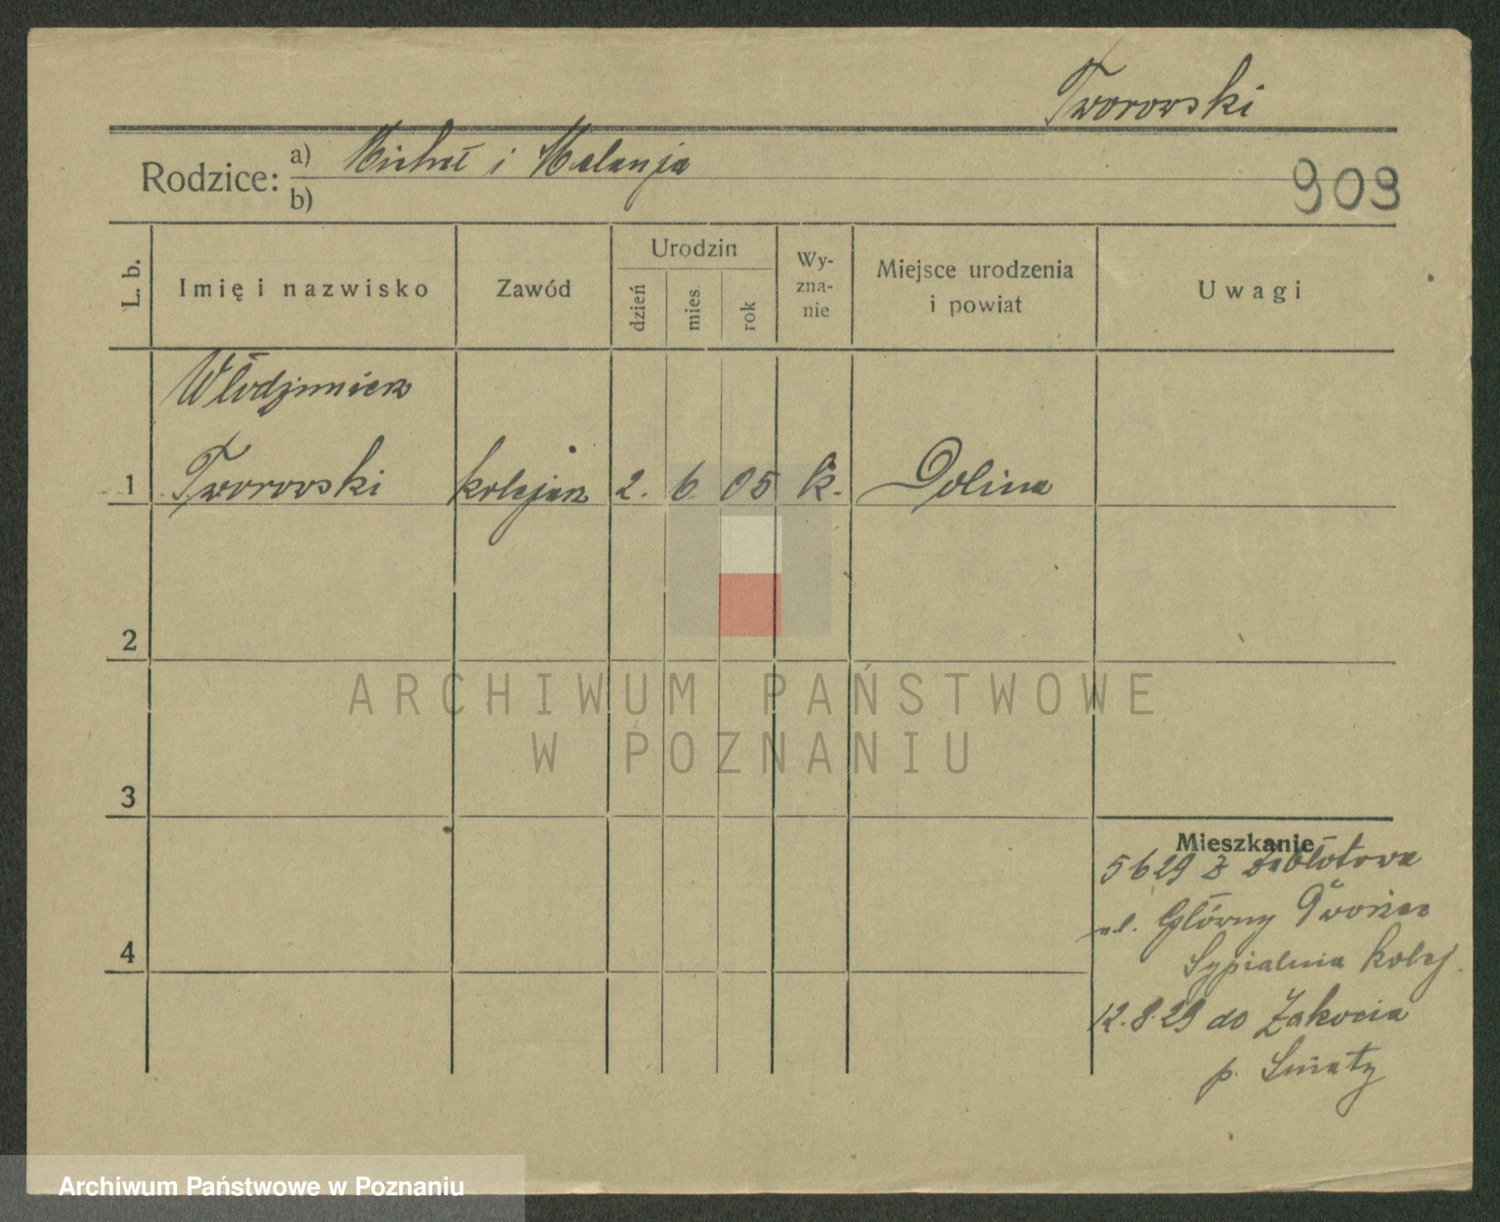 Tworowski
Rodzice: a) Michał i Melanja
b)
909
L. b.
Imię i nazwisko
Zawód
Urodzin
dzień
mies.
rok
Wy-
zna-
nie
Miejsce urodzenia
i powiat
Uwagi
Włodzimierz
1 Tworowski kolejarz 2. 6. 05 k. Dolina
2
ARCHIWUM PAŃSTWOWE
W POZNANIU
3
Mieszkanie
5 6 29 z Zabłotowa
ul. Główny Dworzec
Sypialnia Kolej.
4
12.8.29 do
p. Śniaty
Archiwum Państwowe w Poznaniu